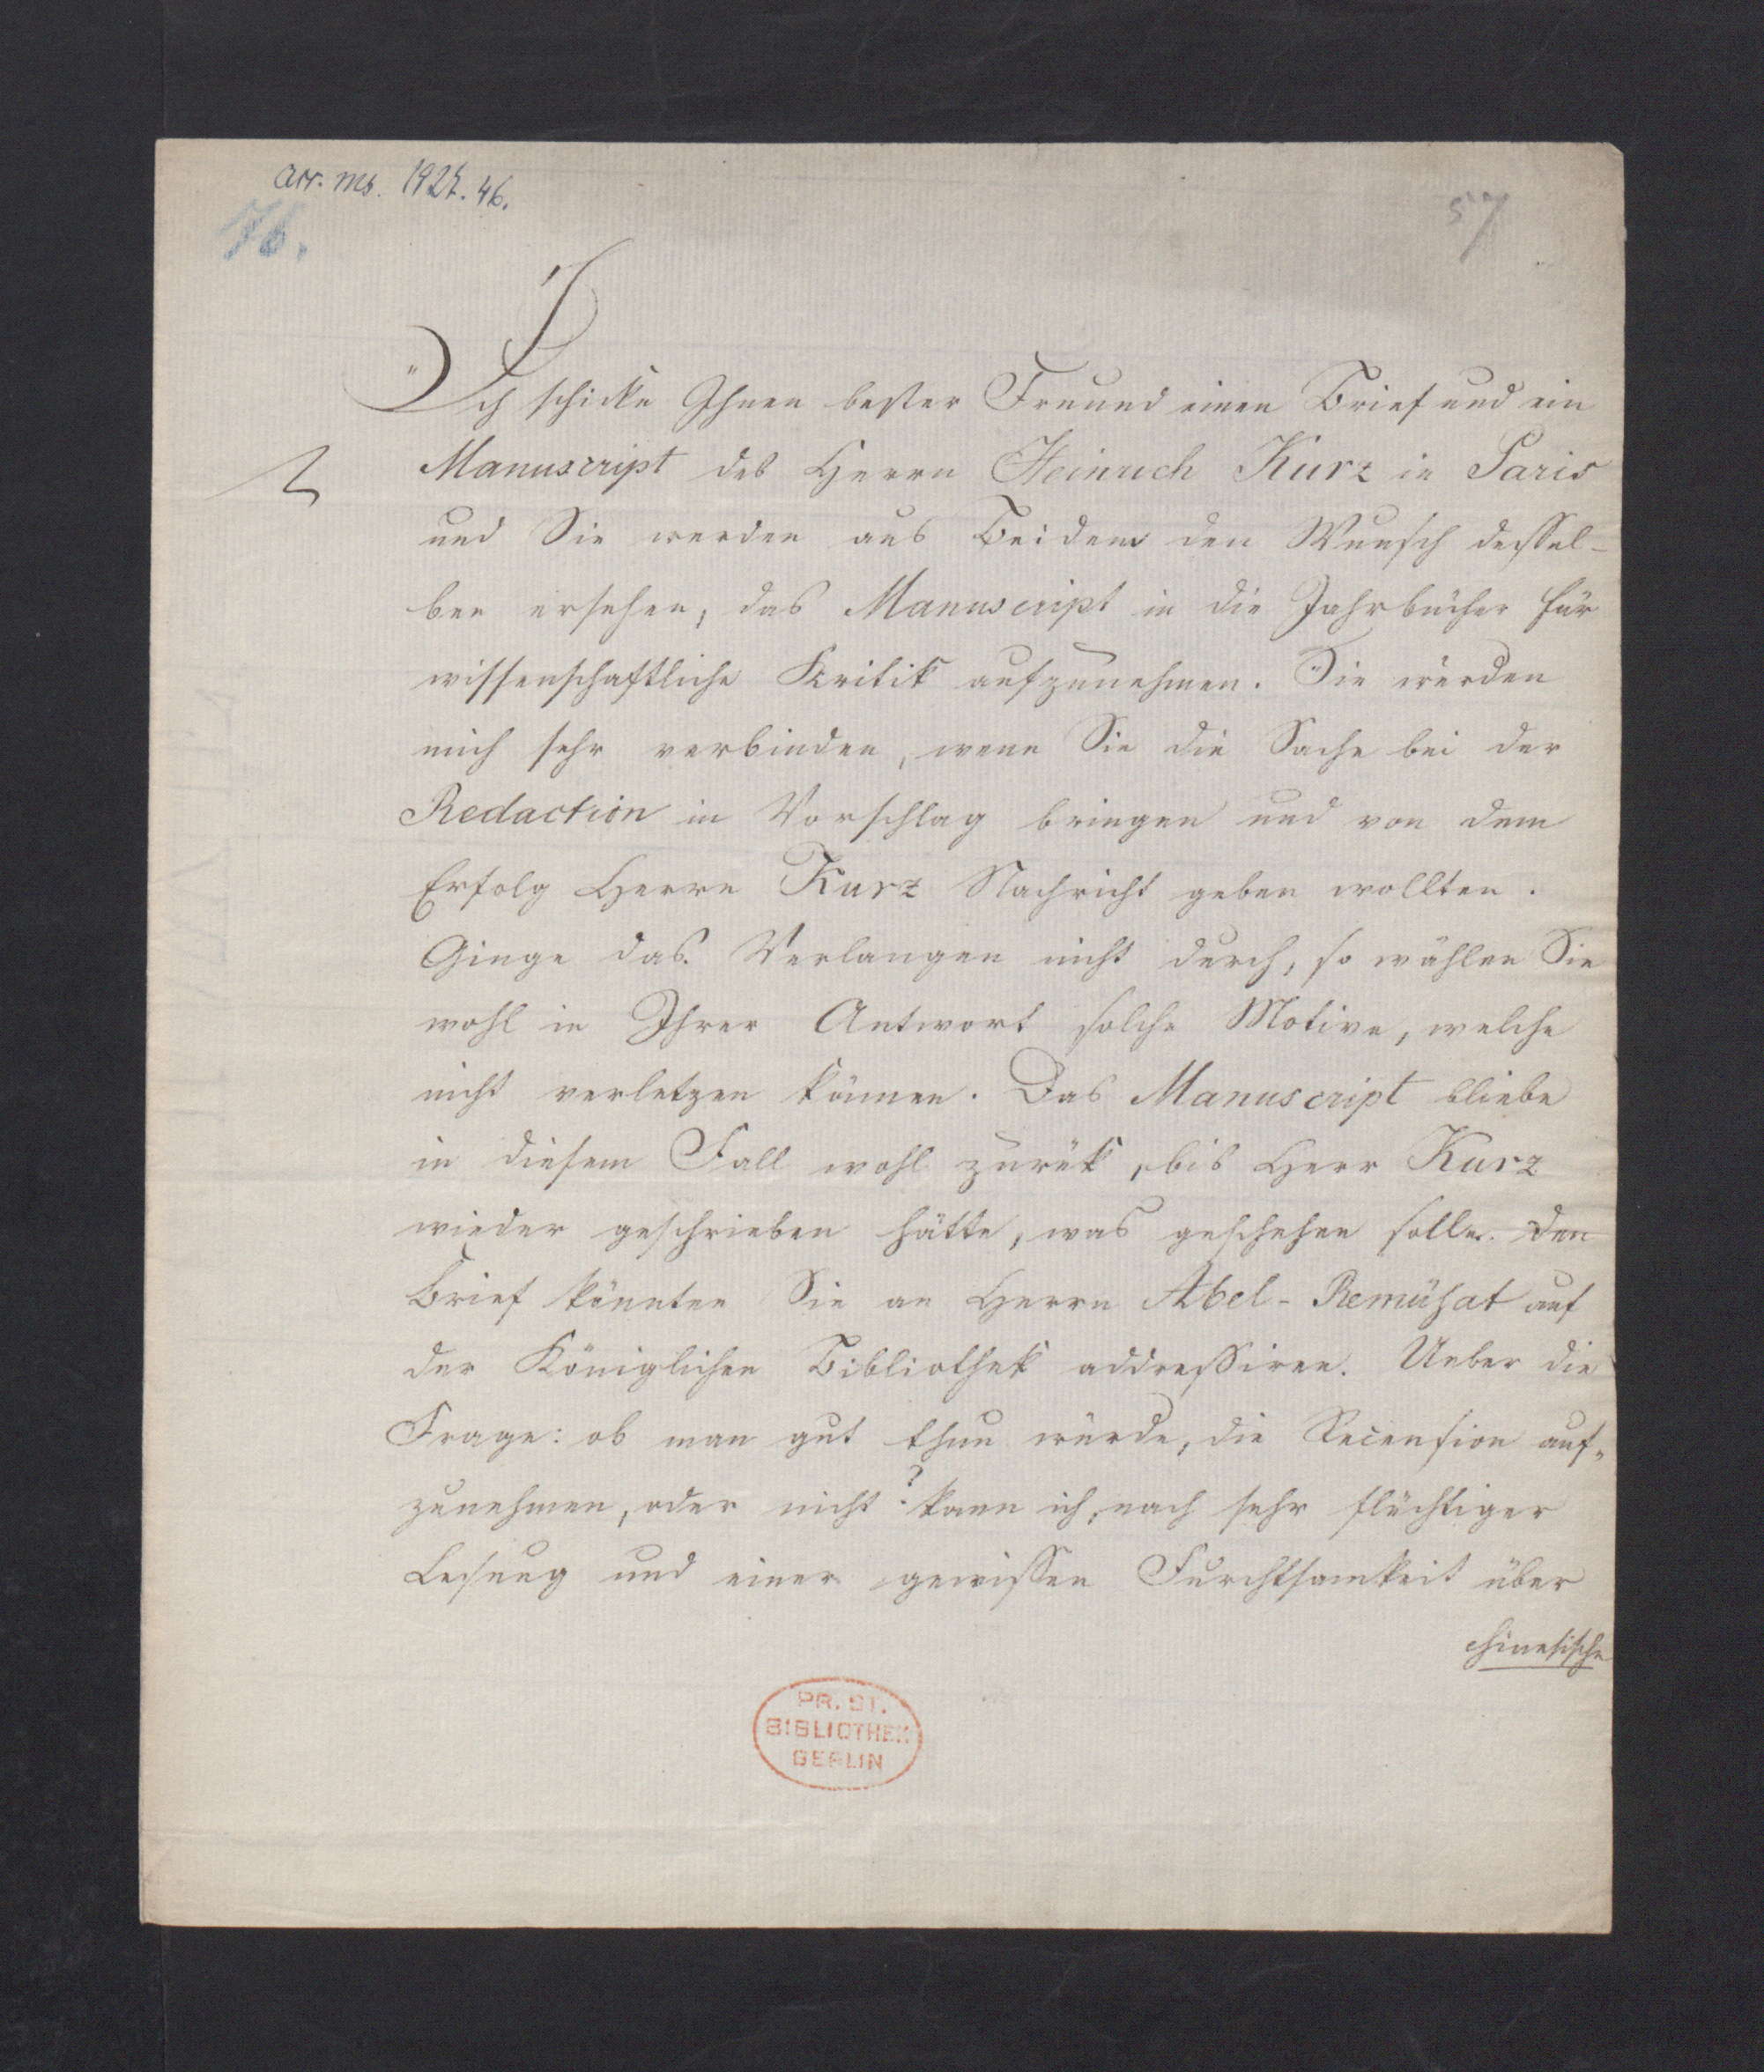 acc. ms. 1927. 46.
76.
57
Ich schicke Ihnen bester Freund einen Brief und ein
Manuscript des Herrn Heinrich Kurz in Paris
und Sie werden aus Beidem den Wunsch dessel-
ben ersehen, das Manuscript in die Jahrbücher für
wissenschaftliche Kritik aufzunehmen. Sie würden
mich sehr verbinden, wenn Sie die Sache bei der
Redaction in Vorschlag bringen und von dem
Erfolg Herrn Kurz Nachricht geben wollten.
Ginge das Verlangen nicht durch, so wählen Sie
wohl in Ihrer Antwort solche Motive, welche
nicht verletzen können. Das Manuscript bliebe
in diesem Fall wohl zurük, bis Herr Kurz
wieder geschrieben hätte, was geschehen solle. Den
Brief könnten Sie an Herrn Abel-Remüsat auf
der Königlichen Bibliothek addressiren. Ueber die
Frage: ob man gut thun würde, die Recension auf-
zunehmen, oder nicht? kann ich, nach sehr flüchtiger
Lesung und einer gewissen Furchtsamkeit über
chinesische
PR. ST.
BIBLIOTHEK
BERLIN